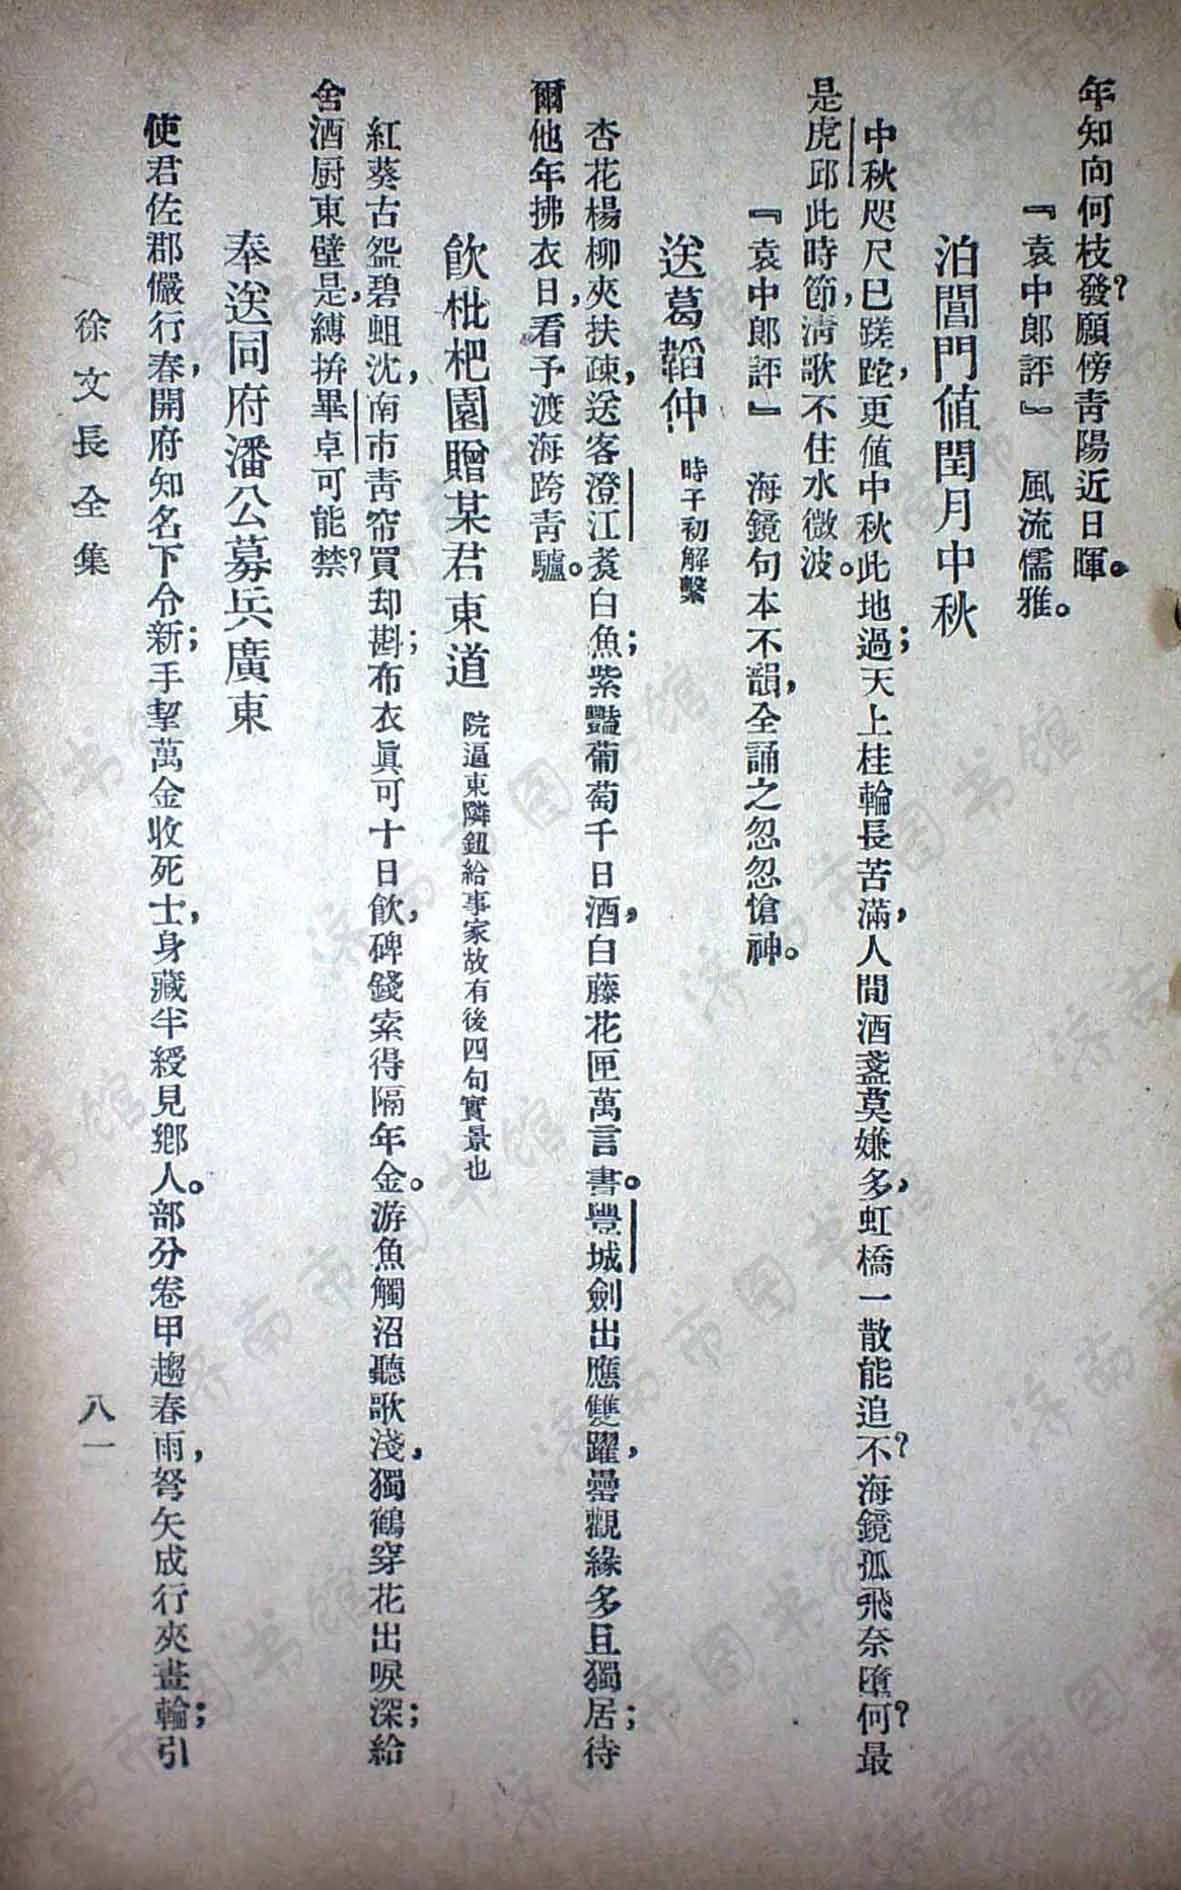 年知向何枝發?願傍青陽近日暉。
『袁中郎評』 風流儒雅。
泊閶門值閏月中秋
中秋咫尺已蹉跎,更值中秋此地過;天上桂輪長苦滿,人間酒盞莫嫌多,虹橋一散能追不?海鏡孤飛奈墮何?最
是虎邱此時節,清歌不住水微波。
『袁中郎評』 海鏡句本不韻,全誦之忽忽愴神。
送葛韜仲 時予初解繫
杏花楊柳夾扶疎,送客澄江煑白魚;紫豔葡萄千日酒,白藤花匣萬言書。豐城劍出應雙躍,罍觀緣多且獨居;待
爾他年拂衣日,看予渡海跨青驢。
飲枇杷園贈某君東道 院逼東隣鈕給事家故有後四句實景也
紅葵古盌碧蛆沈,南市青帘買却斟;布衣眞可十日飲,碑錢索得隔年金。游魚觸沼聽歌淺,獨鶴穿花出唳深;給
舍酒厨東壁是,縛拚畢卓可能禁?
奉送同府潘公募兵廣東
使君佐郡儼行春,開府知名下令新;手挈萬金收死士,身藏半綬見鄉人。部分卷甲趨春雨,弩矢成行夾畫輪;引
徐文長全集
八一
济南市图书馆